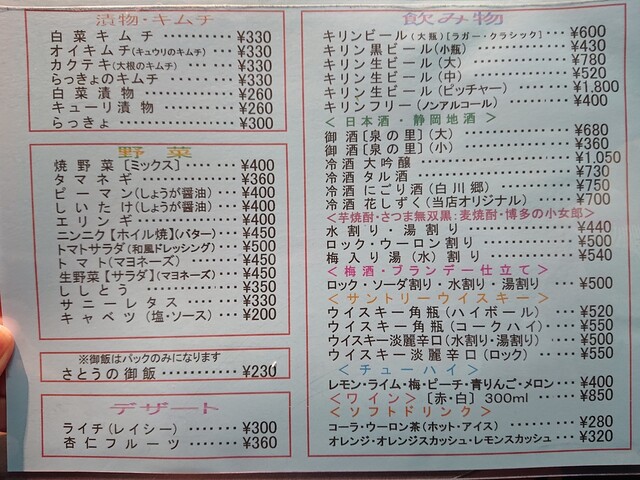 漬物・キムチ
白菜キムチ ・・・・・・・・・ ¥330
オイキムチ(キュウリのキムチ)・・・・ ¥330
カクテキ(大根のキムチ)・・・・・・ ¥330
らっきょのキムチ ・・・・・・・ ¥330
白菜漬物 ・・・・・・・・・・ ¥260
キューリ漬物 ・・・・・・・・ ¥260
らっきょ ・・・・・・・・・・ ¥300
野菜
焼野菜[ミックス]・・・・・・・ ¥400
タマネギ ・・・・・・・・・・ ¥360
ピーマン(しょうが醤油)・・・・・ ¥400
しいたけ(しょうが醤油)・・・・・ ¥400
エリンギ ・・・・・・・・・・ ¥400
ニンニク【ホイル焼】(バター)・・・ ¥450
トマトサラダ(和風ドレッシング)・・・ ¥500
トマト(マヨネーズ)・・・・・・ ¥450
生野菜【サラダ】(マヨネーズ)・・・ ¥450
ししとう ・・・・・・・・・・ ¥350
サニーレタス ・・・・・・・・ ¥330
キャベツ(塩・ソース)・・・・・・ ¥200
※御飯はパックのみになります
さとうの御飯 ・・・・・・・・ ¥230
デザート
ライチ(レイシー)・・・・・・・ ¥300
杏仁フルーツ ・・・・・・・・ ¥360
飲み物
キリンビール(大瓶)[ラガー・クラシック]・・・ ¥600
キリン黒ビール(小瓶)・・・・・・・ ¥430
キリン生ビール(大)・・・・・・・・ ¥780
キリン生ビール(中)・・・・・・・・ ¥520
キリン生ビール(ピッチャー)・・・・・ ¥1,800
キリンフリー(ノンアルコール)・・・・・ ¥400
<日本酒・静岡地酒>
御酒[泉の里](大)・・・・・・・・ ¥680
御酒[泉の里](小)・・・・・・・・ ¥360
冷酒 大吟醸 ・・・・・・・・・・ ¥1,050
冷酒 タル酒 ・・・・・・・・・・ ¥730
冷酒 にごり酒(白川郷)・・・・・・ ¥750
冷酒 花しずく(当店オリジナル)・・・ ¥700
<芋焼酎・さつま無双黒:麦焼酎・博多の小女郎>
水割り・湯割り ・・・・・・・・・ ¥440
ロック・ウーロン割り ・・・・・・ ¥500
梅入り湯(水)割り ・・・・・・・ ¥540
<梅酒・ブランデー仕立て>
ロック・ソーダ割り・水割り・湯割り ・・・ ¥500
<サントリーウイスキー>
ウイスキー角瓶(ハイボール)・・・・ ¥520
ウイスキー角瓶(コークハイ)・・・・ ¥550
ウイスキー淡麗辛口(水割り・湯割り)・・・ ¥500
ウイスキー淡麗辛口(ロック)・・・・ ¥550
<チューハイ>
レモン・ライム・梅・ピーチ・青りんご・メロン・・・ ¥400
<ワイン>[赤・白]300ml ・・・・ ¥850
<ソフトドリンク>
コーラ・ウーロン茶(ホット・アイス)・・・・ ¥280
オレンジ・オレンジスカッシュ・レモンスカッシュ・・・ ¥320